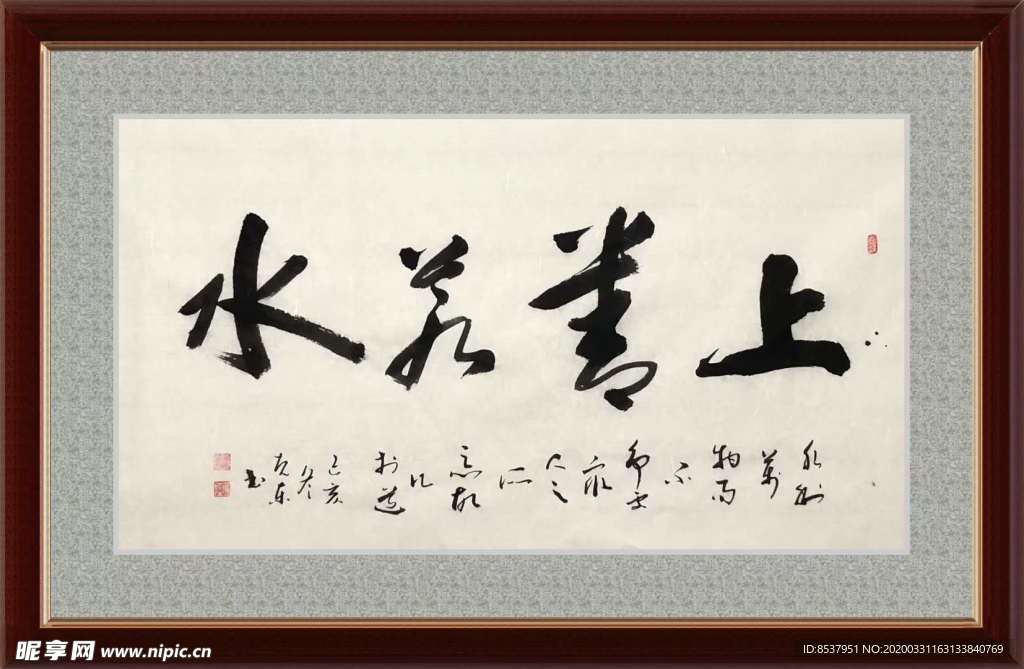 上善若水
水利
万
物而
不
争处
众
人之
所
恶故
几
於道
己亥
冬
克东
书
昵享网 www.nipic.cn
ID:8537951 NO:20200331163133840769